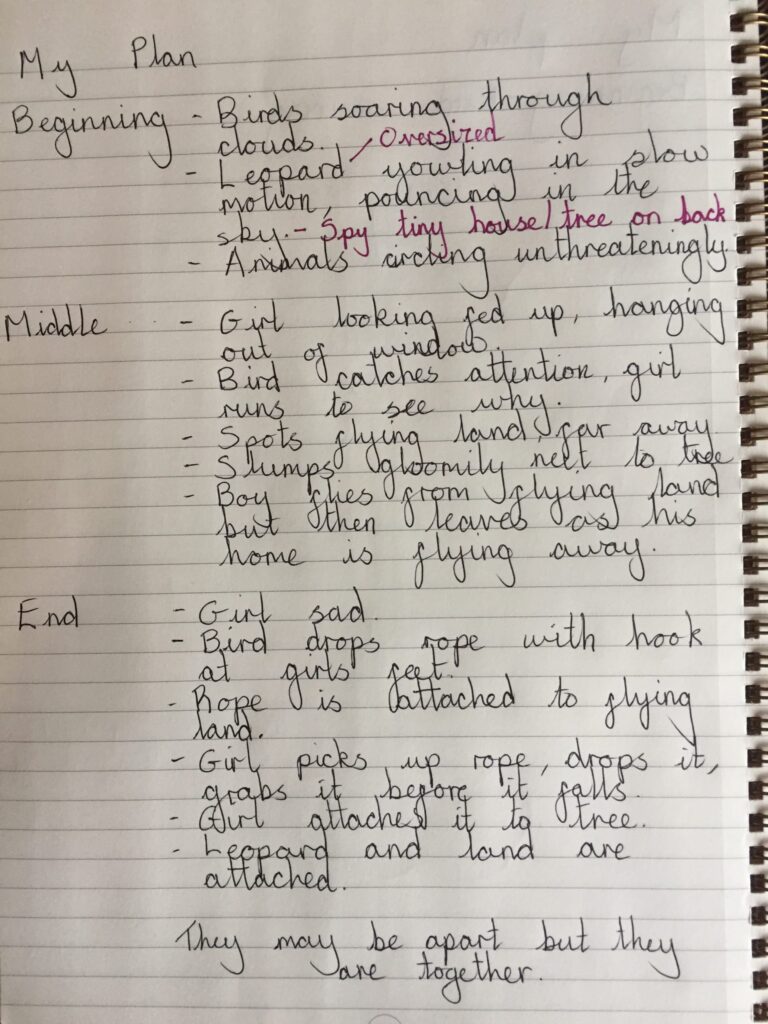 My Plan
Beginning - Birds soaring through
clouds. Oversized
- Leopard yowling in slow
motion, pouncing in the
sky. - Spy tiny house/tree on back
- Animals circling unthreateningly
Middle - Girl looking fed up, hanging
out of window.
- Bird catches attention, girl
runs to see why.
- Spots flying land, far away
- Slumps gloomily next to tree
- Boy flies from flying land
but then leaves as his
home is flying away.
End - Girl sad.
- Bird drops rope with hook
at girls feet.
- Rope is attached to flying
land.
- Girl picks up rope, drops it,
grabs it before it falls.
- Girl attached it to tree.
- Leopard and land are
attached.
They may be apart but they
are together.